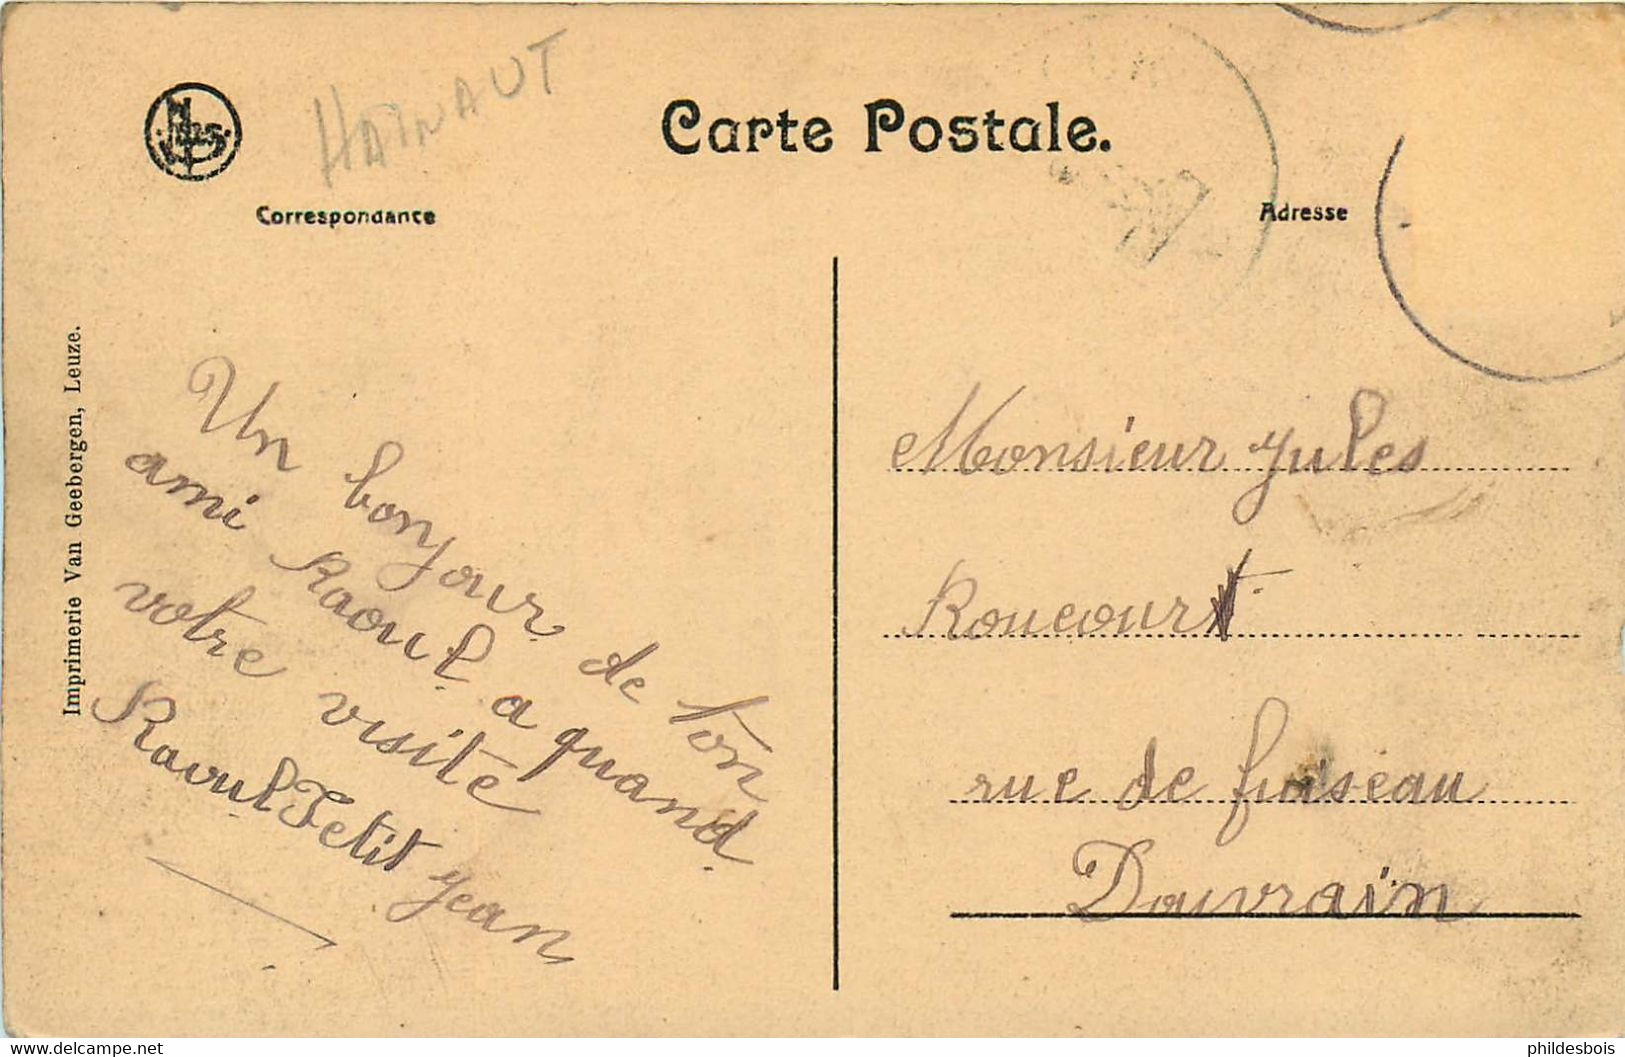 HAINAUT
Carte Postale.
Correspondance
Adresse
Imprimerie Van Geebergen, Leuze.
Un bonjour de ton
ami Raoul a quand
votre visite
Raoul Petit Jean
Monsieur Jules
Roucourt
rue de
Douvrain
phildesbois